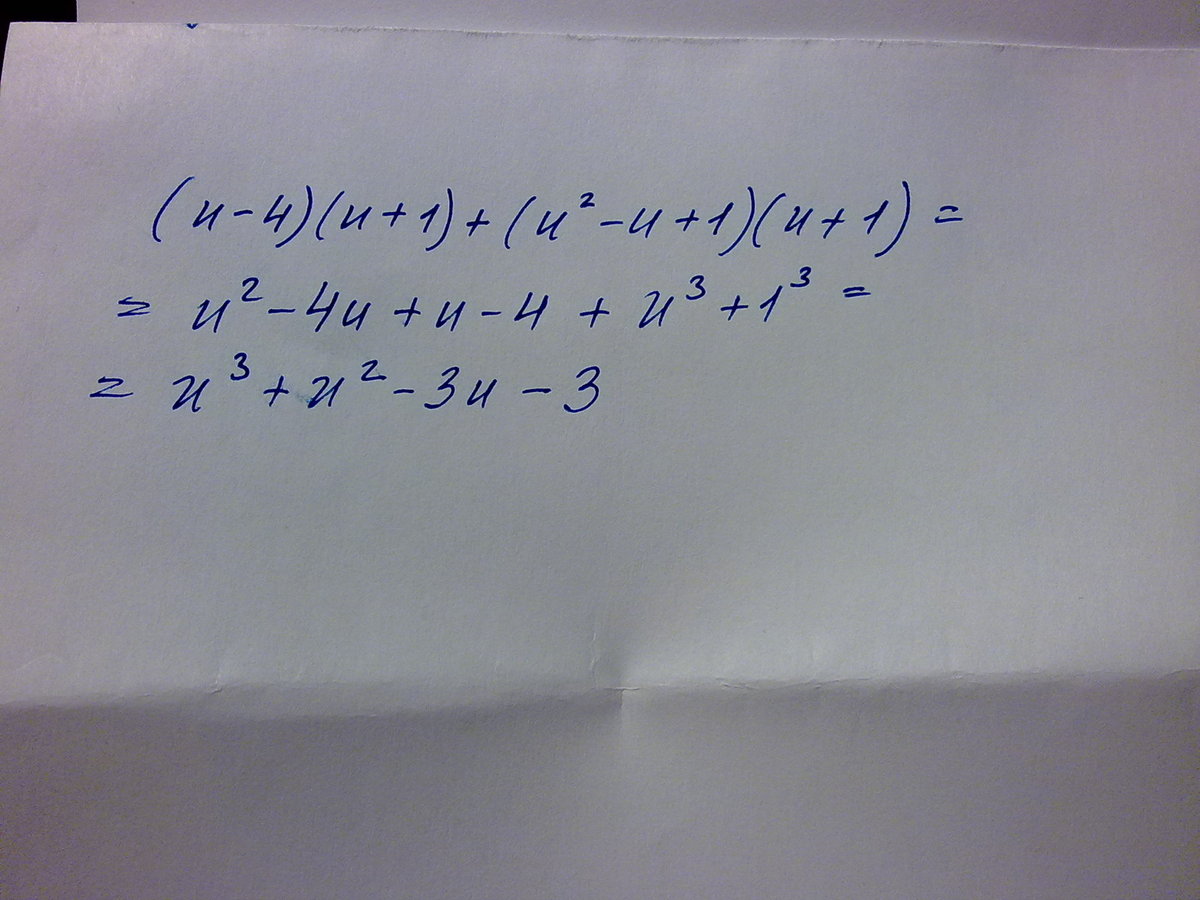 (u-4)(u+1)+(u²-u+1)(u+1)=
= u²-4u+u-4+u³+1³=
= u³+u²-3u-3